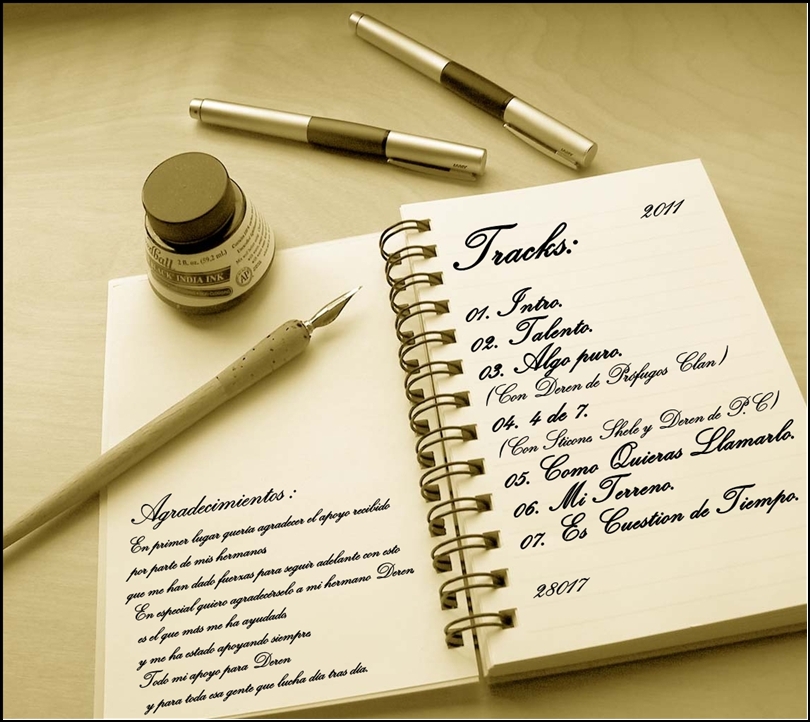 2011
Tracks:
01. Intro.
02. Talento.
03. Algo puro.
(Con Deren de Prófugos Clan)
04. 4 de 7.
(Con Sticone, Shele y Deren de P.C)
05. Como Quieras Llamarlo.
06. Mi Terreno.
07. Es Cuestion de Tiempo.
28017
Agradecimientos :
En primer lugar quería agradecer el apoyo recibido
por parte de mis hermanos
que me han dado fuerzas para seguir adelante con esto
En especial quiero agradecérselo a mi hermano Deren
es el que más me ha ayudado
y me ha estado apoyando siempre
Todo mi apoyo para Deren
y para toda esa gente que lucha día tras día.
2 fl. oz. (59,2 ml)
BLACK INDIA INK
AP